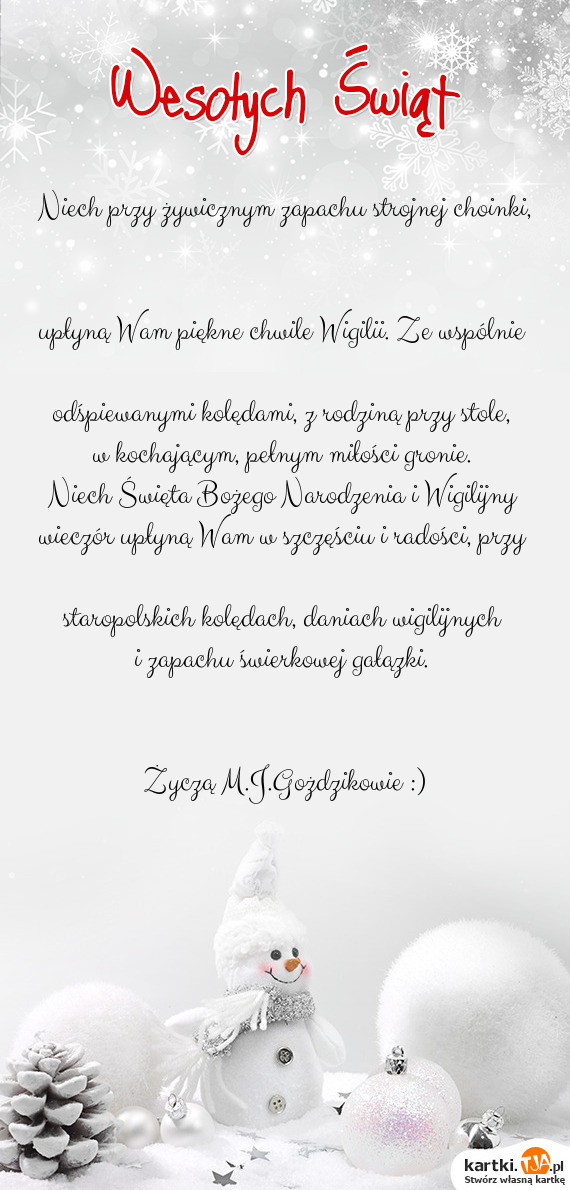 Wesołych Świąt
Niech przy żywicznym zapachu strojnej choinki,
upłyną Wam piękne chwile Wigilii. Ze wspólnie
odśpiewanymi kolędami, z rodziną przy stole,
w kochającym, pełnym miłości gronie.
Niech Święta Bożego Narodzenia i Wigilijny
wieczór upłyną Wam w szczęściu i radości, przy
staropolskich kolędach, daniach wigilijnych
i zapachu świerkowej gałązki.
Życzą M.J.Gożdzikowie :)
kartki.TJA.pl
Stwórz własną kartkę